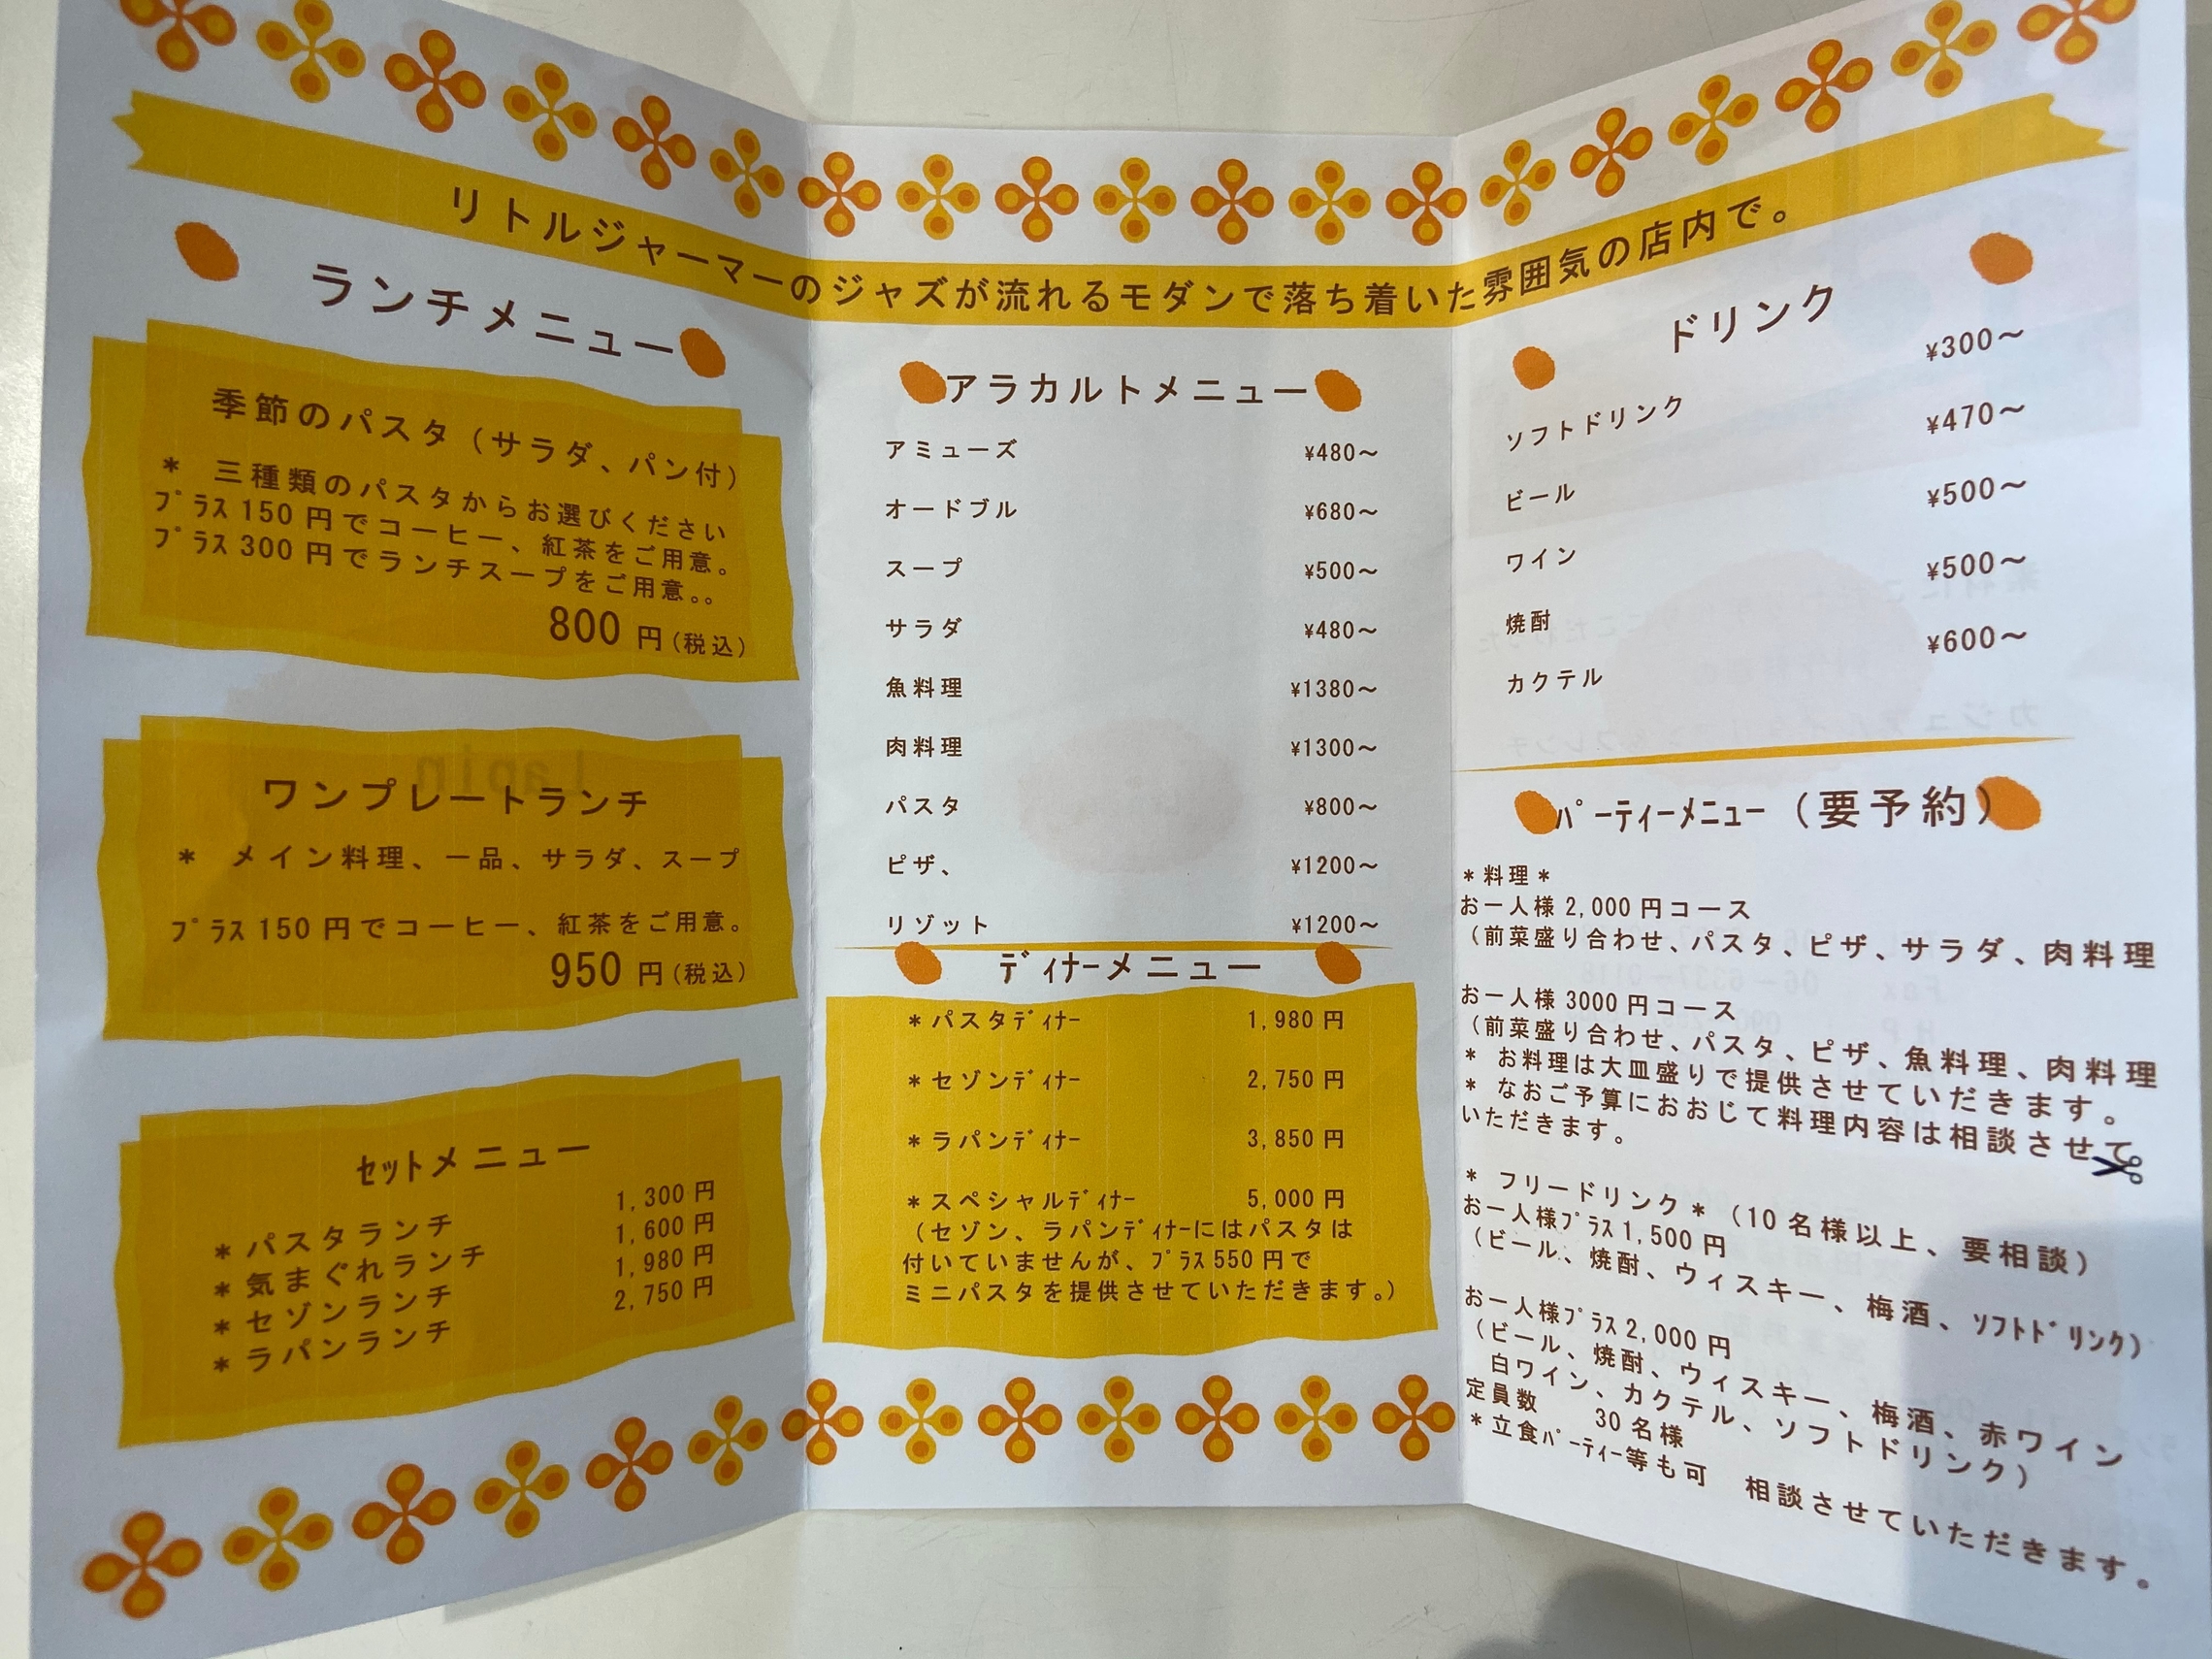 リトルジャーマーのジャズが流れるモダンで落ち着いた雰囲気の店内で。
ランチメニュー
季節のパスタ（サラダ、パン付）
＊ 三種類のパスタからお選びください
ﾌﾟﾗｽ150円でコーヒー、紅茶をご用意。
ﾌﾟﾗｽ300円でランチスープをご用意。。
800円(税込)
ワンプレートランチ
＊ メイン料理、一品、サラダ、スープ
ﾌﾟﾗｽ150円でコーヒー、紅茶をご用意。
950円(税込)
ｾｯﾄメニュー
＊パスタランチ 1,300円
＊気まぐれランチ 1,600円
＊セゾンランチ 1,980円
＊ラパンランチ 2,750円
アラカルトメニュー
アミューズ ¥480～
オードブル ¥680～
スープ ¥500～
サラダ ¥480～
魚料理 ¥1380～
肉料理 ¥1300～
パスタ ¥800～
ピザ、 ¥1200～
リゾット ¥1200～
ﾃﾞｨﾅｰメニュー
＊パスタﾃﾞｨﾅｰ 1,980円
＊セゾンﾃﾞｨﾅｰ 2,750円
＊ラパンﾃﾞｨﾅｰ 3,850円
＊スペシャルﾃﾞｨﾅｰ 5,000円
（セゾン、ラパンﾃﾞｨﾅｰにはパスタは
付いていませんが、ﾌﾟﾗｽ550円で
ミニパスタを提供させていただきます。）
ドリンク
ソフトドリンク ¥300～
ビール ¥470～
ワイン ¥500～
焼酎 ¥500～
カクテル ¥600～
ﾊﾟｰﾃｨｰﾒﾆｭｰ（要予約）
＊料理＊
お一人様2,000円コース
（前菜盛り合わせ、パスタ、ピザ、サラダ、肉料理
お一人様3000円コース
（前菜盛り合わせ、パスタ、ピザ、魚料理、肉料理
＊ お料理は大皿盛りで提供させていただきます。
＊ なおご予算におおじて料理内容は相談させて
いただきます。
＊ フリードリンク＊（10名様以上、要相談）
お一人様ﾌﾟﾗｽ1,500円
（ビール、焼酎、ウィスキー、梅酒、ｿﾌﾄﾄﾞﾘﾝｸ）
お一人様ﾌﾟﾗｽ2,000円
（ビール、焼酎、ウィスキー、梅酒、赤ワイン
白ワイン、カクテル、ソフトドリンク）
定員数 30名様
＊立食ﾊﾟｰﾃｨｰ等も可 相談させていただきます。